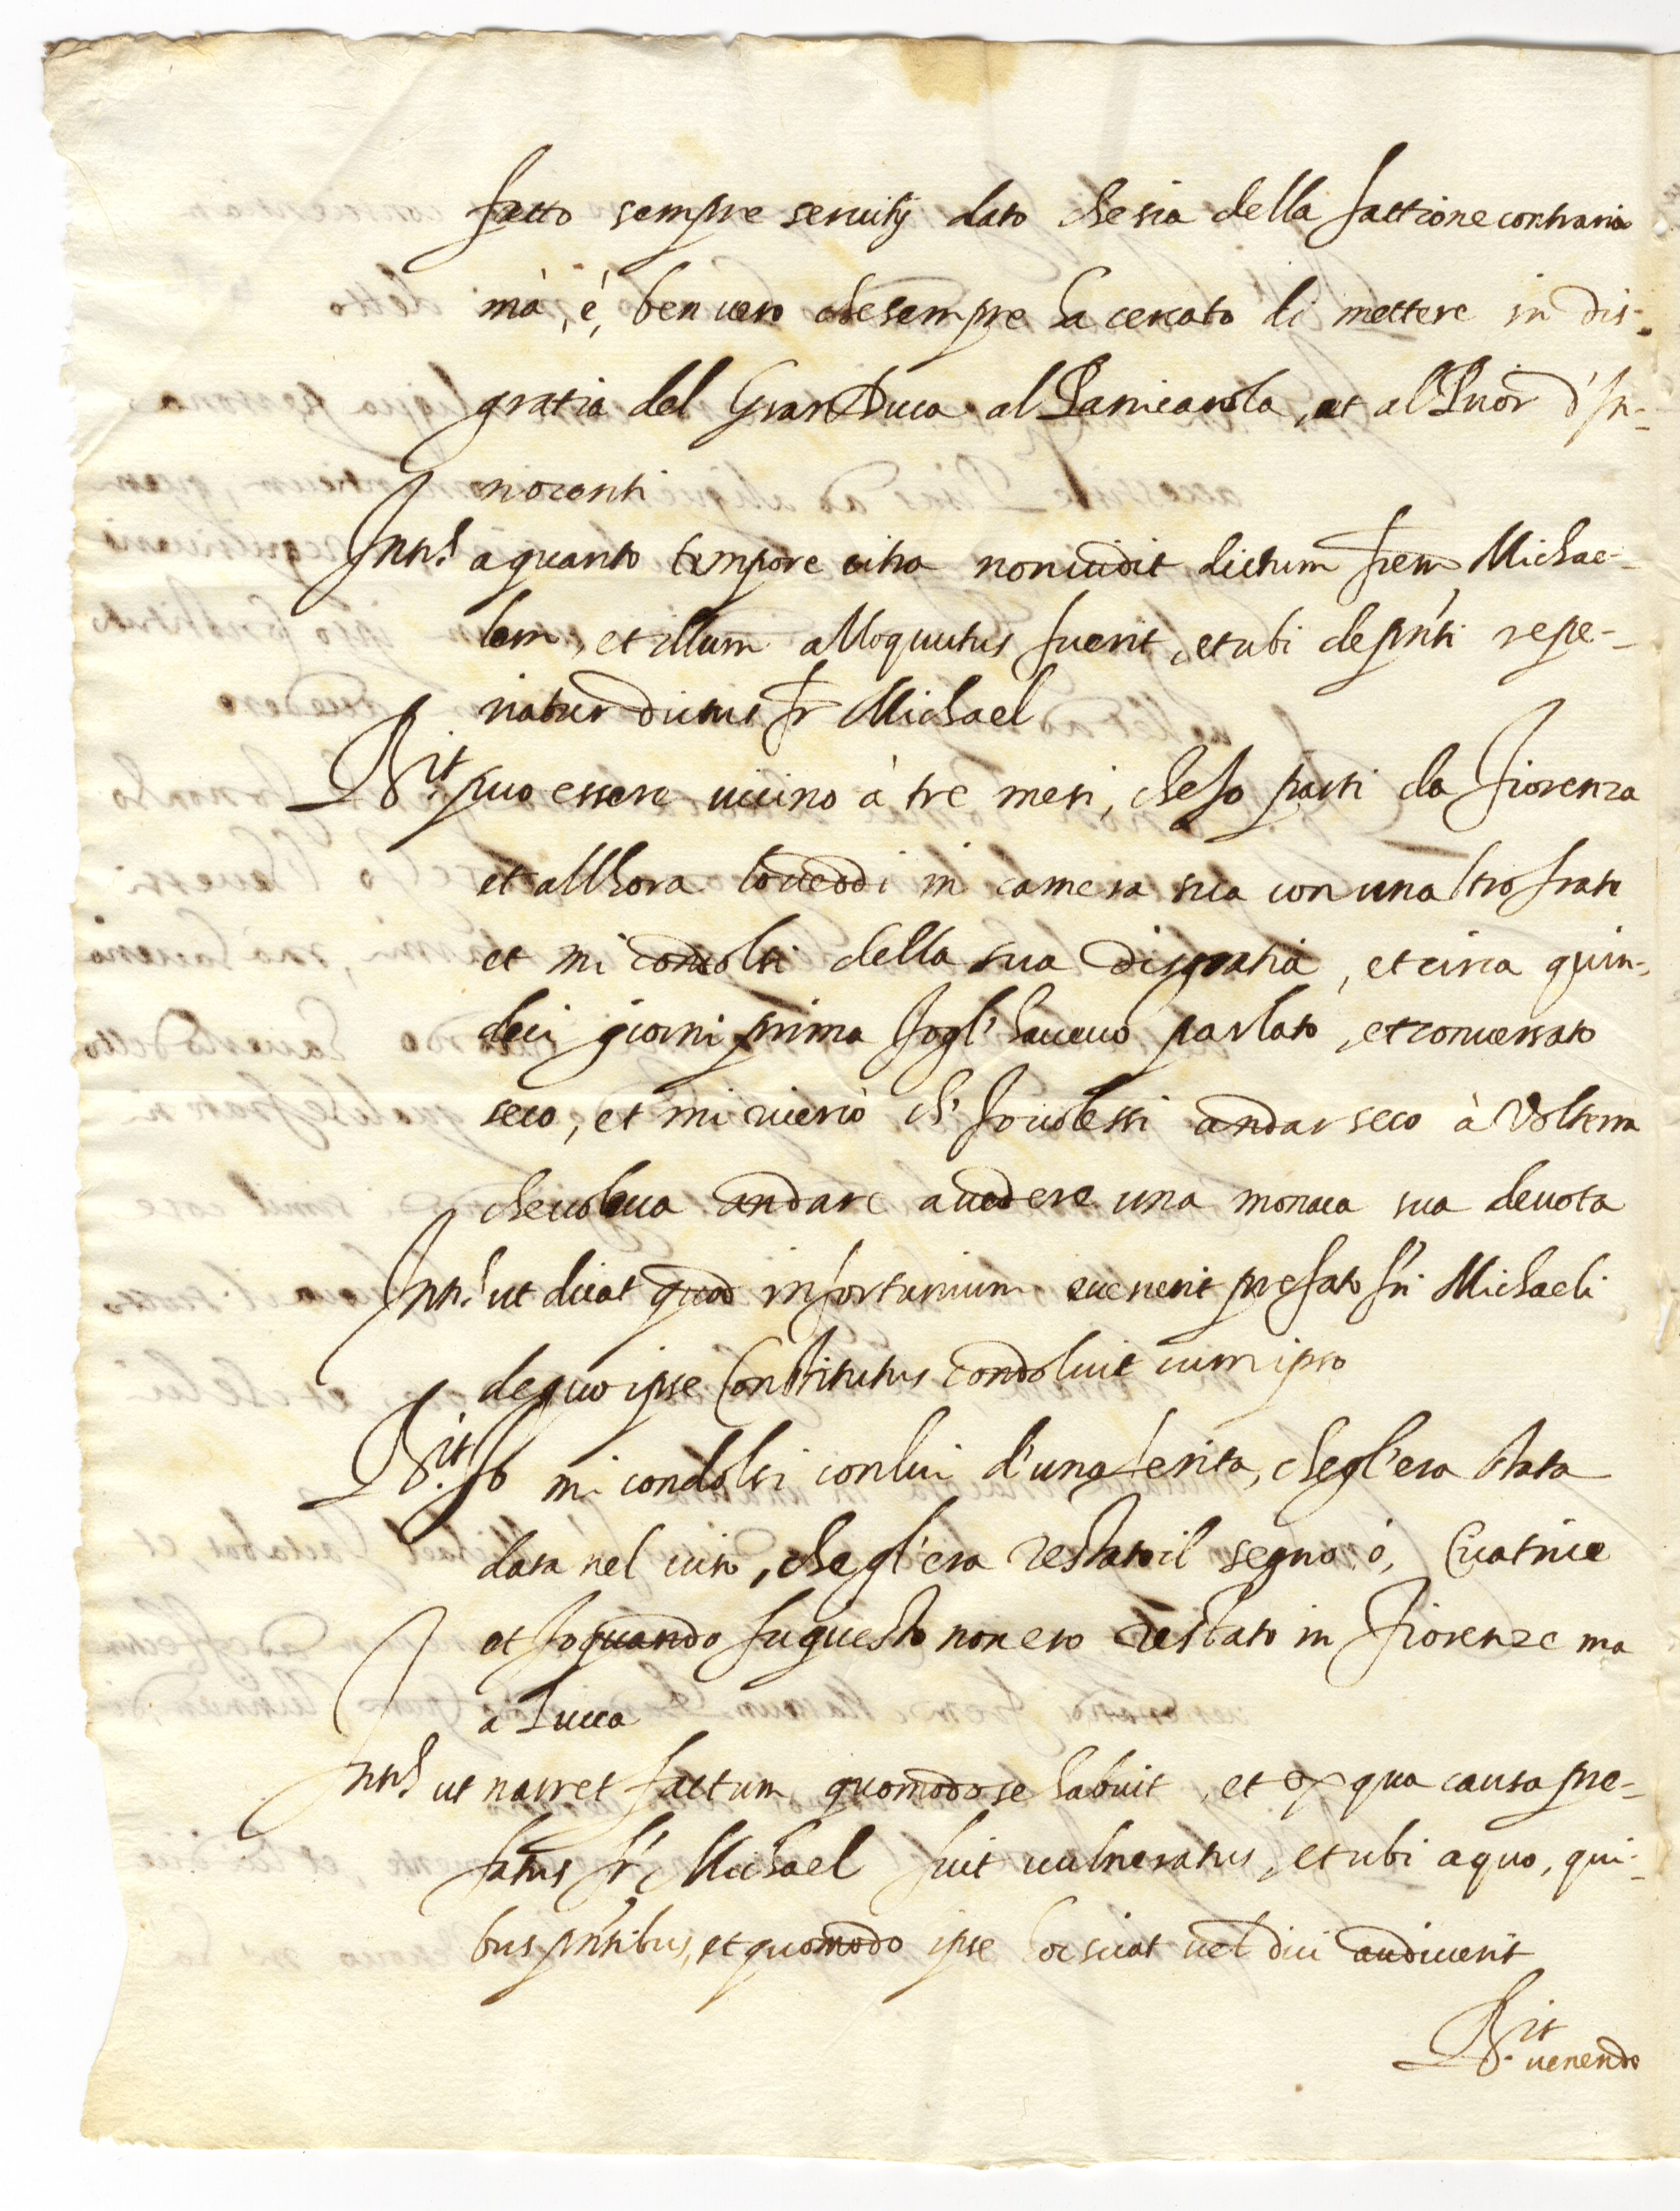 fatto sempre seruitij dato che sia della fattione contraria
mà, è, ben uero che sempre ha cercato di mettere in dis-
gratia del Gran Duca al Panicarola, et al Prior d'In-
nocenti
Intus à quanto tempore citra non uidit dictum frem Michae-
lem, et illum alloquutus fuerit, et ubi de pnti repe-
riatur dictus fr Michael
Rit. puo essere uicino à tre mesi, che Io parti da Fiorenza
et allhora lo ueddi in camera sua con un altro frate
et mi condolsi della sua disgratia, et circa quin-
deci giorni prima Io gl' haueuo parlato, et conuersato
seco, et mi ricercò ch' Io uolessi andar seco à Volterra
che uoleua andare a uedere una monaca sua deuota
Intus ut dicat quod infortunium euenerit prefato fri Michaeli
de quo ipse Constitutus condoluit cum ipso
Rit. Io mi condolsi con lui d'una ferita, che gl'era stata
data nel uiso, che gl'era restato il segno ò, Cicatrice
et Io quando fu questo non ero restato in Fiorenze ma
a Lucca
Intus ut narret factum quomodo se habuit, et ex qua causa pre-
fatus fr Michael fuit uulneratus, et ubi a quo, qui-
bus pntibus, et quomodo ipse hoc sciat uel dici audiuerit
Rit. uenendo